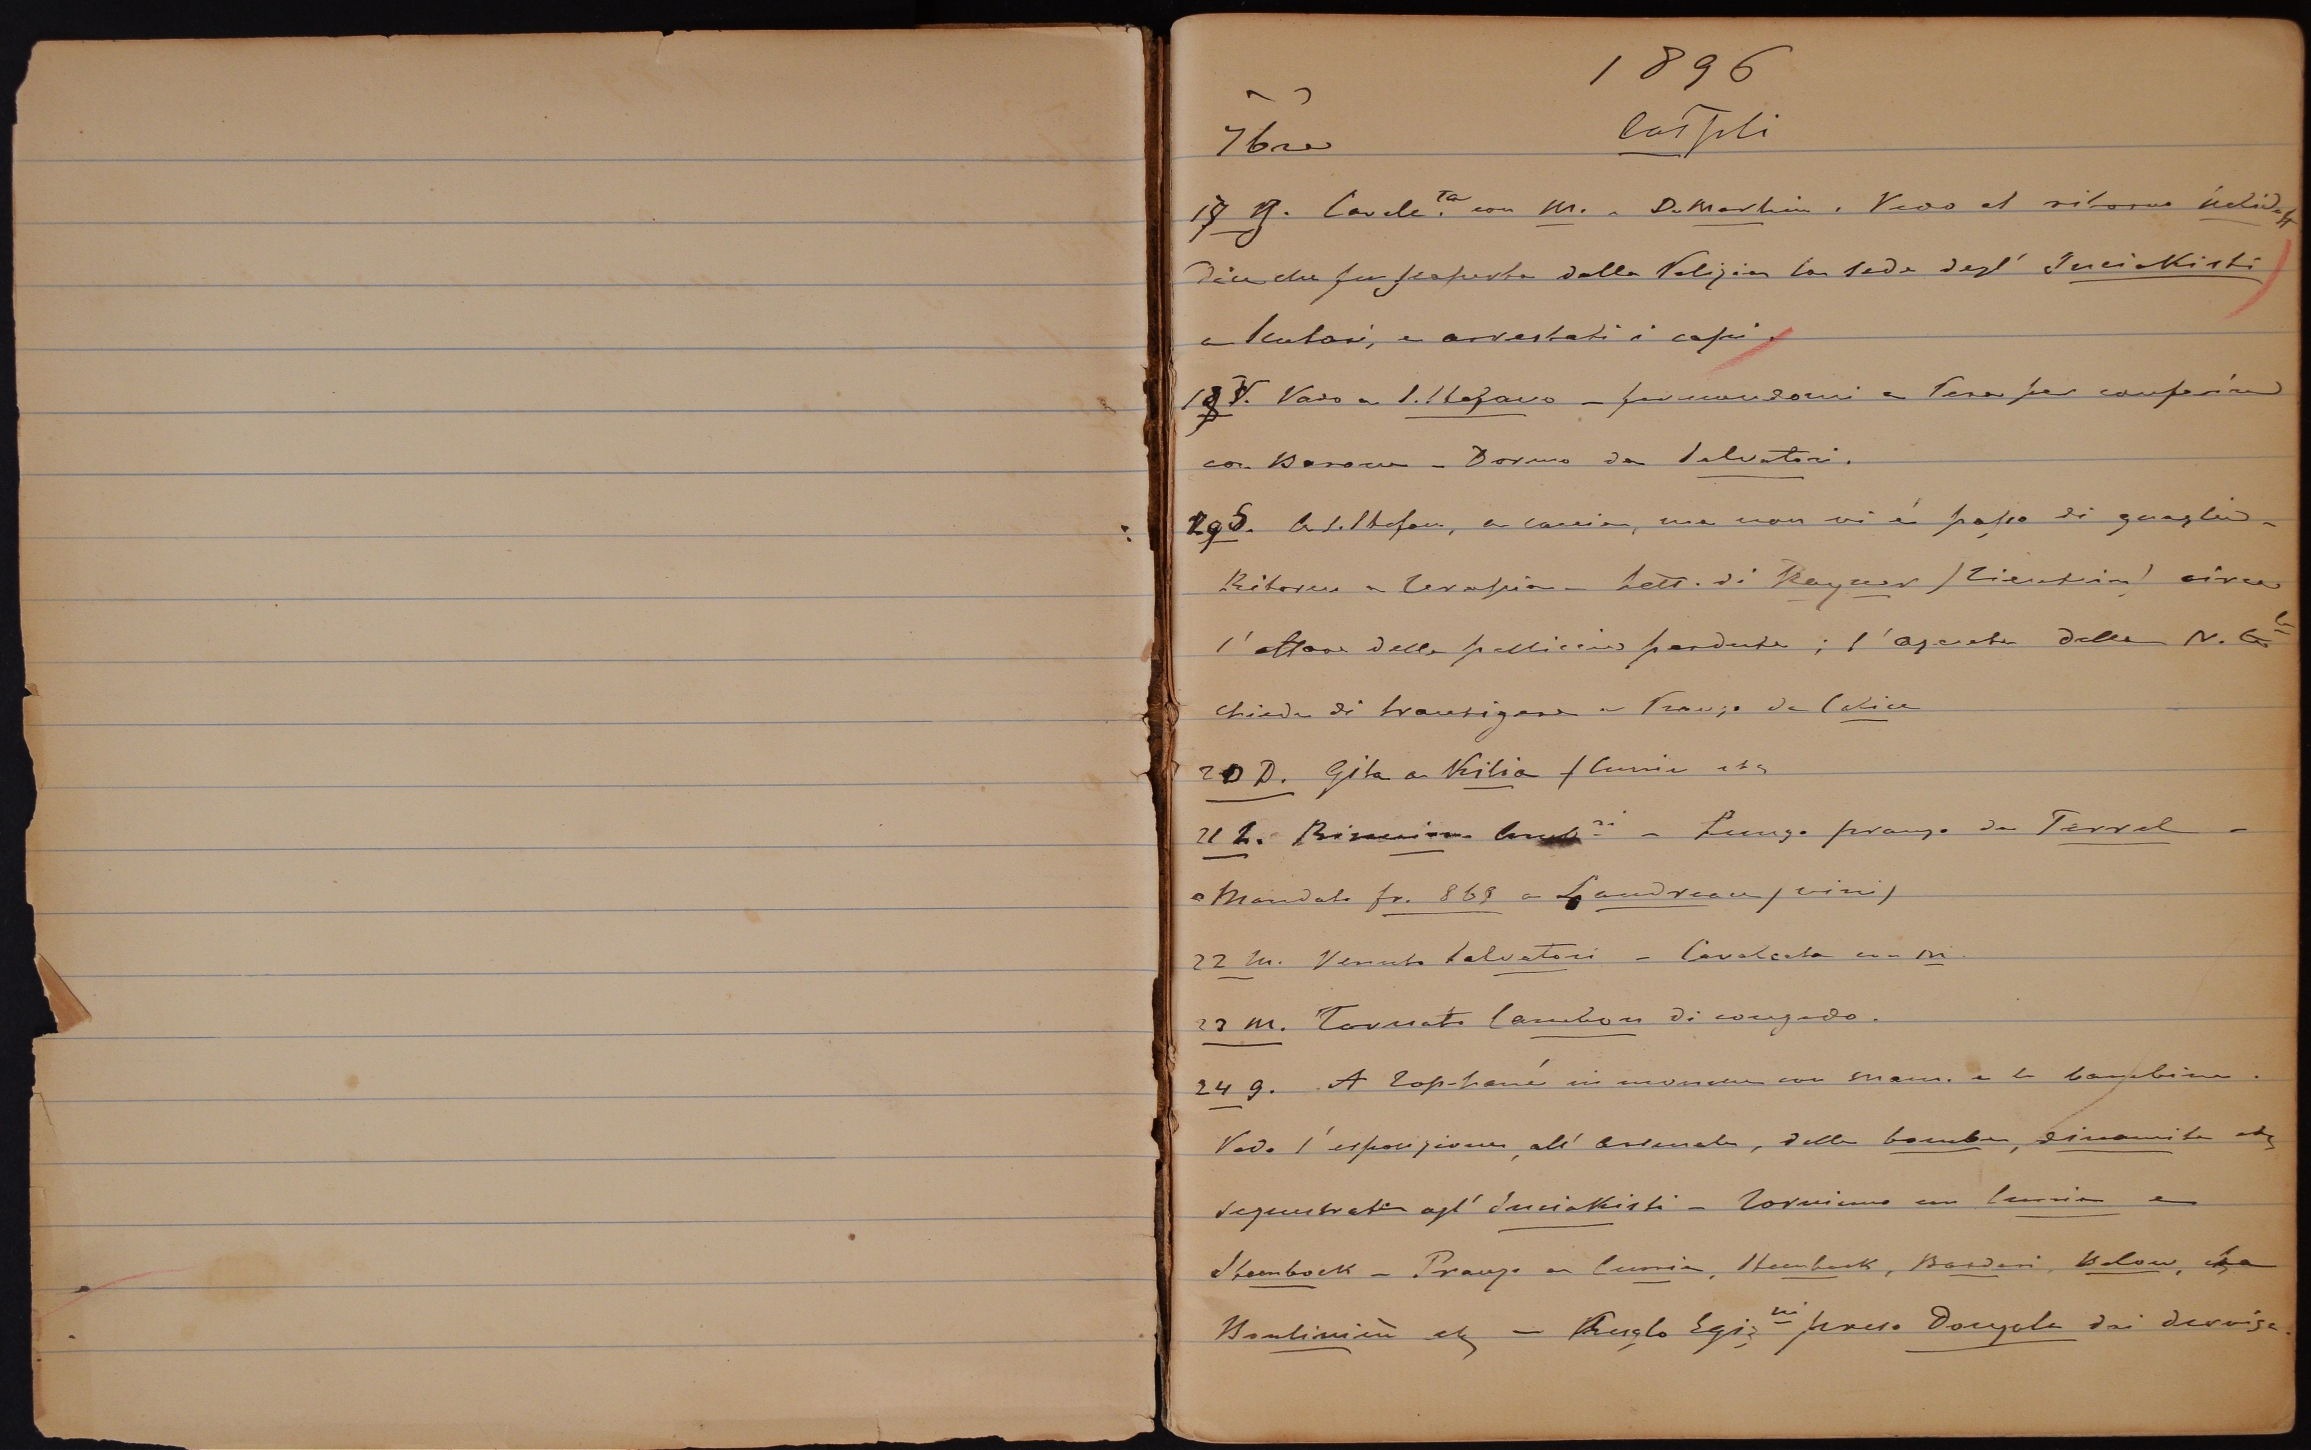 1896
7bre Cospli
17 G. Cavalc.ta con M. e De Martino. Vedo al ritorno
dice che fu scoperta dalla Polizia la sede degl' Inciakisti
a Scutari, e arrestati i capi.
18 V. Vado a S. Stefano – fermandomi a Pera per conferire
con Barone – Dormo da Salvatori.
19 S. A S. Stefano, a caccia, ma non vi è passo di quaglie –
Ritorno a Terapia – Lett. di circa
l'affare delle pelliccie perdute; l'agente della N. G.le
chiede di transigere – Pranzo da Calice
20 D. Gita a Kilia / Currie etc
21 L. Riunione Amb.ri – Lungo pranzo da Terrel –
Mandato fr. 869 a Landreau / vini /
22 M. Venuto Salvatori – Cavalcata con M.
23 M. Tornato Cambon di congedo.
24 G. A Top-hané in mouche con Mam. e le bambine.
Vedo l'esposizione, all' Arsenale, delle bombe, dinamite etc
sequestrate agl' Inciakisti – Torniamo con Currie e
Steenbock – Pranzo a Currie, Steenbock, Below,
etc – Anglo Egiz.ni preso Dongola dai dervisc.